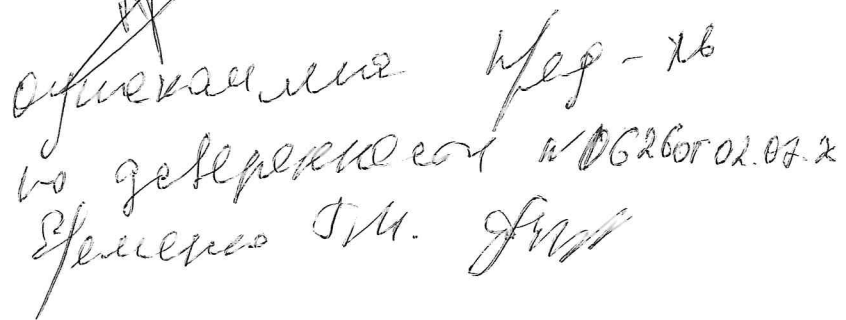 ознакомлена пред-ль
по доверенности N 0626 от 02.07.2
Еременко Г.И.